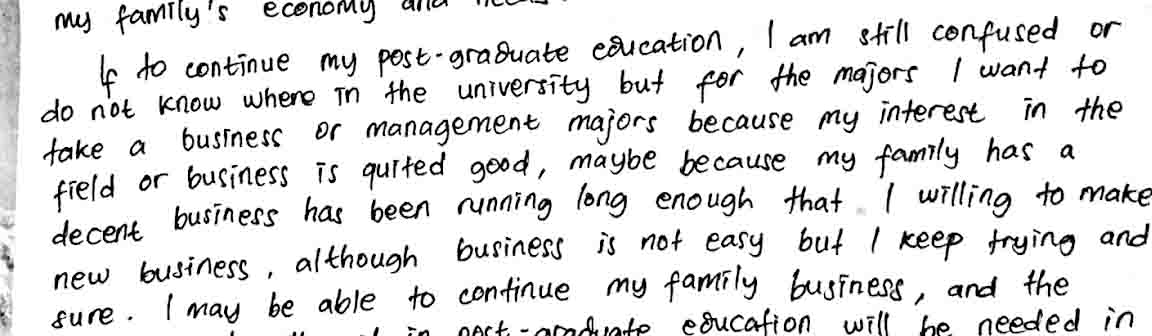 my family's economy and
If to continue my post-graduate education, I am still confused or
do not know where in the university but for the majors I want to
take a business or management majors because my interest in the
field or business is quited good, maybe because my family has a
decent business has been running long enough that I willing to make
new business, although business is not easy but I keep trying and
sure. I may be able to continue my family business, and the
in post-graduate education will be needed in